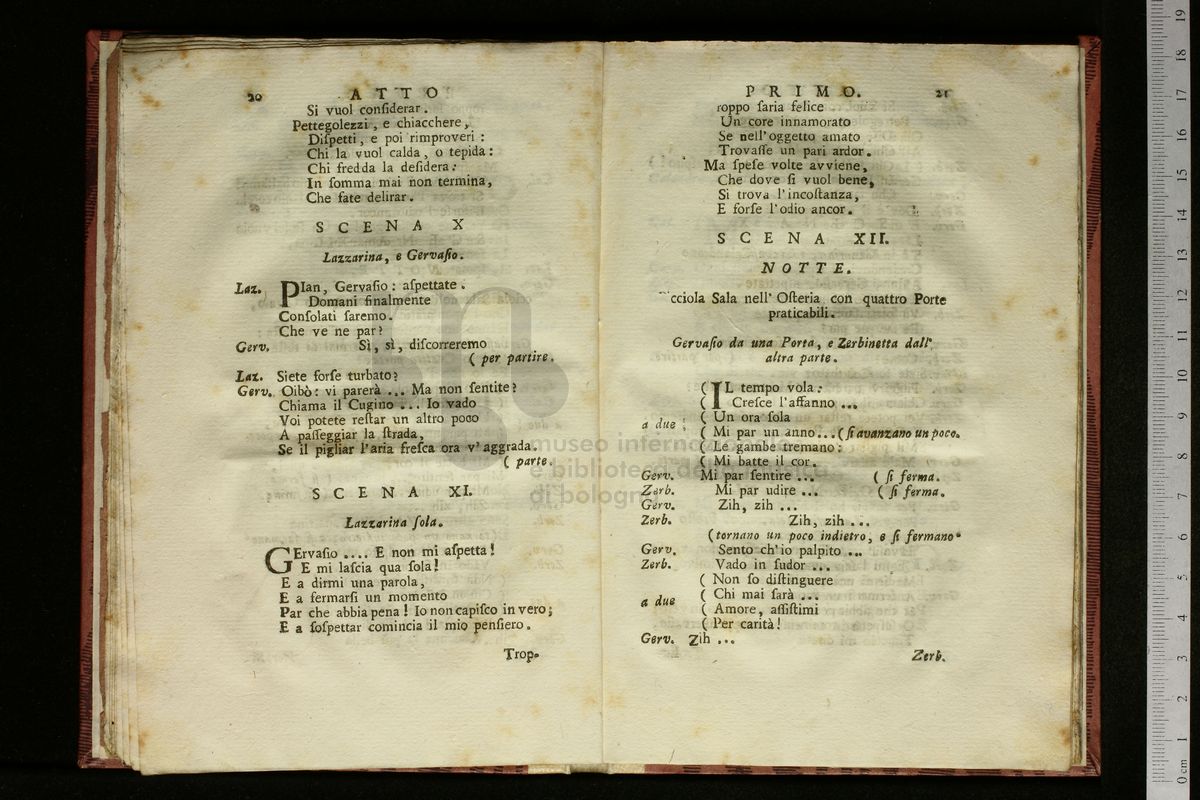 20 ATTO
Si vuol conſiderar.
Pettegolezzi, e chiacchere,
Diſpetti, e poi rimproveri:
Chi la vuol calda, o tepida:
Chi fredda la deſidera:
In ſomma mai non termina,
Che fate delirar.
SCENA X
Lazzarina, e Gervaſio.
Laz. PIan, Gervaſio: aſpettate.
Domani finalmente
Conſolati ſaremo.
Che ve ne par?
Gerv. Sì, sì, diſcorreremo
( per partire.
Laz. Siete forſe turbato?
Gerv. Oibò: vi parerà ... Ma non ſentite?
Chiama il Cugino ... Io vado
Voi potete reſtar un altro poco
A paſſeggiar la ſtrada,
Se il pigliar l'aria freſca ora v'aggrada.
( parte.
SCENA XI.
Lazzarina ſola.
GErvaſio .... E non mi aſpetta!
E mi laſcia qua ſola!
E a dirmi una parola,
E a fermarſi un momento
Par che abbia pena! Io non capiſco in vero;
E a ſoſpettar comincia il mio penſiero.
Trop-
PRIMO. 21
roppo ſaria felice
Un core innamorato
Se nell'oggetto amato
Trovaſſe un pari ardor.
Ma ſpeſe volte avviene,
Che dove ſi vuol bene,
Si trova l'incoſtanza,
E forſe l'odio ancor.
SCENA XII.
NOTTE.
cciola Sala nell'Oſteria con quattro Porte
praticabili.
Gervaſio da una Porta, e Zerbinetta dall'
altra parte.
( IL tempo vola:
( Creſce l'affanno ...
( Un ora ſola
a due ( Mi par un anno...( ſi avanzano un poco.
( Le gambe tremano:
( Mi batte il cor.
Gerv. Mi par ſentire ... ( ſi ferma.
Zerb. Mi par udire ... ( ſi ferma.
Gerv. Zih, zih ...
Zerb. Zih, zih ...
(tornano un poco indietro, e ſi fermano
Gerv. Sento ch'io palpito ...
Zerb. Vado in ſudor ...
( Non ſo diſtinguere
a due ( Chi mai ſarà ...
( Amore, aſſiſtimi
( Per carità!
Gerv. Zih ...
Zerb.
museo internaz
e bibliotec
di bologn